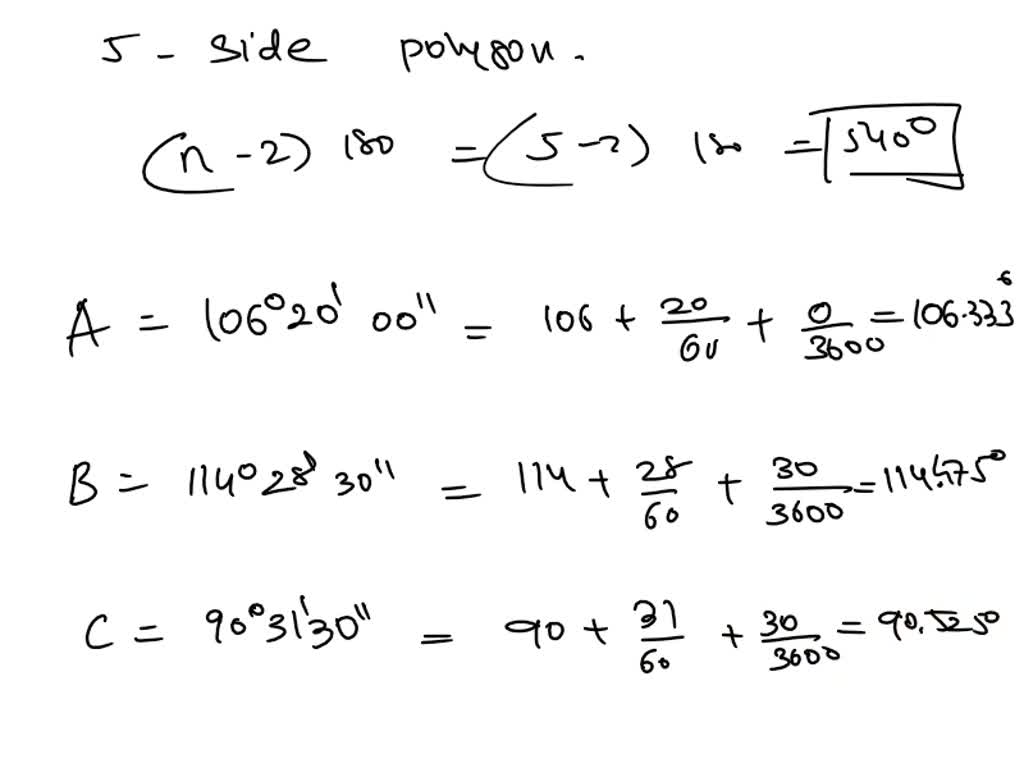 5 - Side polygon.
(n - 2) 180 = (5 - 2) 180 = 540°
A = 106°20' 00" = 106 + 20/60 + 0/3600 = 106.333°
B = 114°28' 30" = 114 + 28/60 + 30/3600 = 114.475°
C = 90°31'30" = 90 + 31/60 + 30/3600 = 90.525°